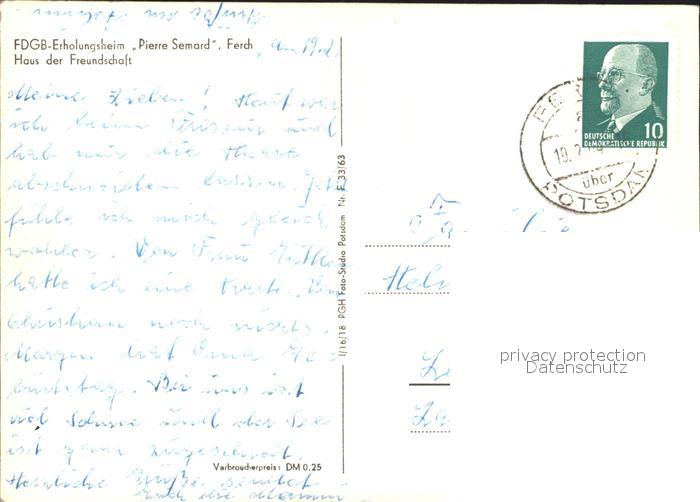 FDGB-Erholungsheim „Pierre Semard", Ferch
Haus der Freundschaft
Meine Lieben! Heut war
ich beim Friseur und
hab mir die Haare
abschneiden lassen. Jetzt
fühle ich mich gleich
wohler. Von Frau
hatte ich eine Karte. Von
Christian noch nichts.
Morgen hat Oma Ge-
burtstag. Bei uns ist
viel Sonne und der See
ist ganz zugeschneit.
Herzliche Grüße sendet
Euch die
Verbraucherpreis: DM 0.25
I/16/18 PGH Foto-Studio Potsdam Nr. F. 33/63
10
DEUTSCHE
DEMOKRATISCHE REPUBLIK
über
POTSDAM
Familie
privacy protection
Datenschutz